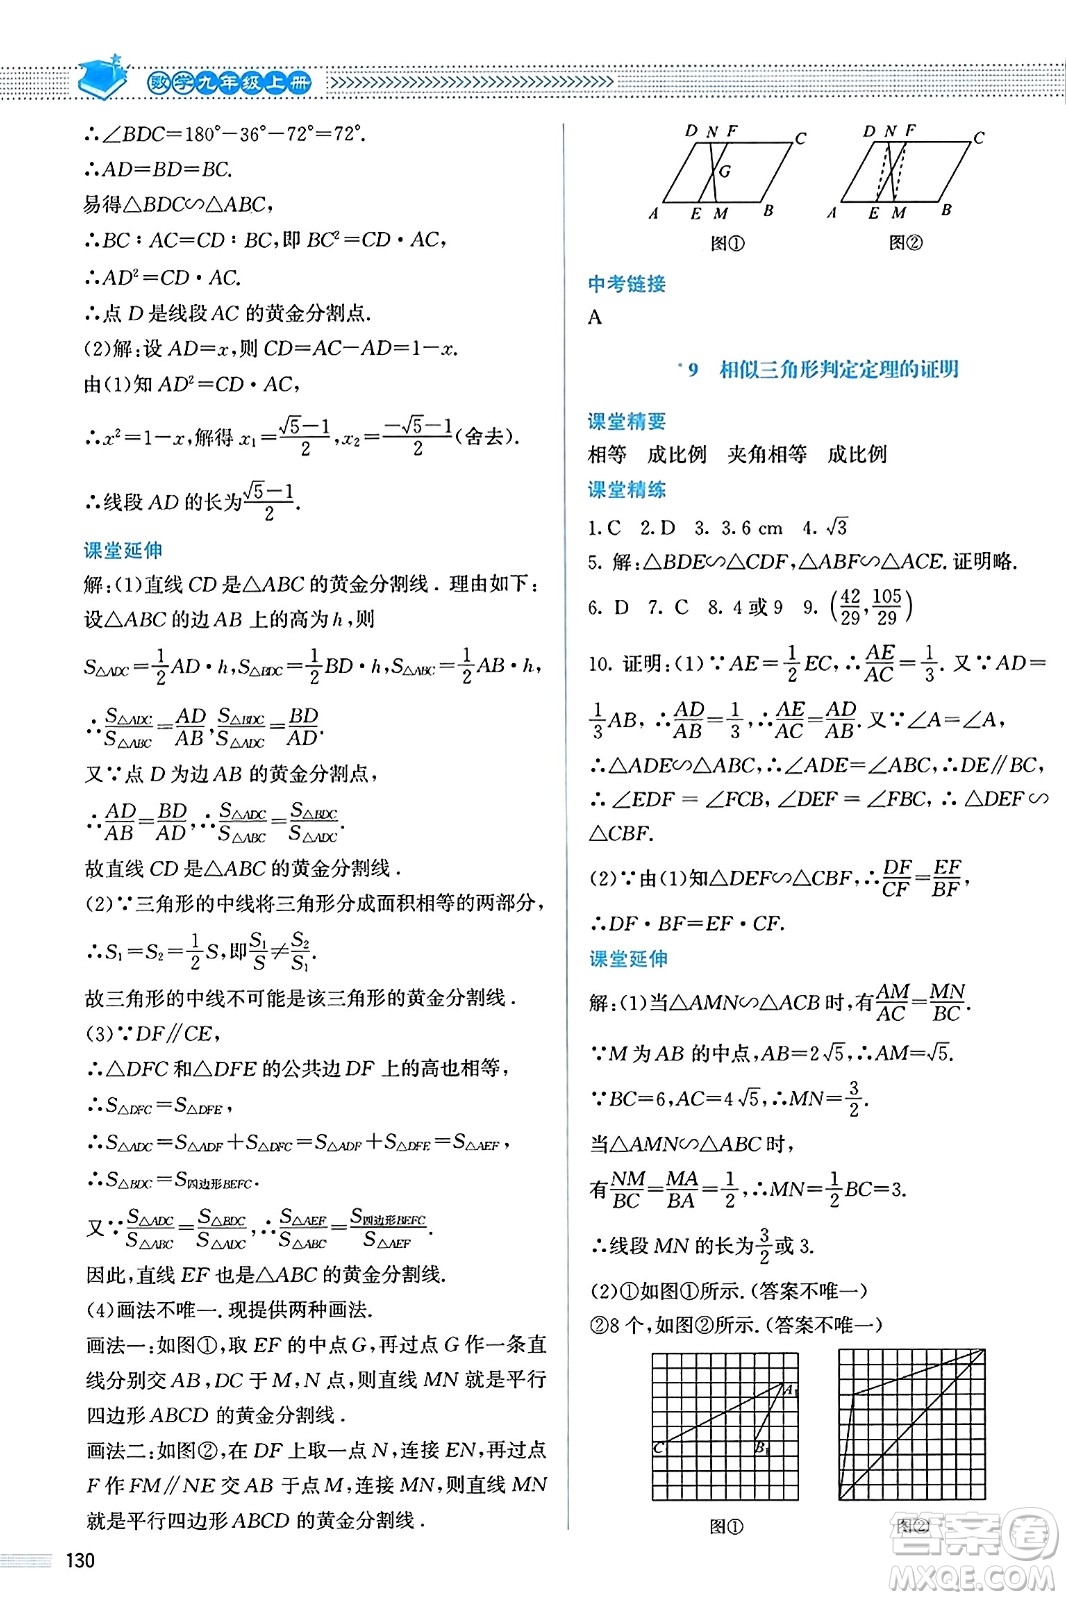 数学九年级上册
∴∠BDC=180°-36°-72°=72°.
∴AD=BD=BC.
易得△BDC∽△ABC,
∴BC∶AC=CD∶BC,即 BC²=CD·AC,
∴AD²=CD·AC.
∴点 D 是线段 AC 的黄金分割点.
(2)解:设 AD=x,则 CD=AC-AD=1-x.
由(1)知 AD²=CD·AC,
∴x²=1-x,解得 x₁=(√5-1)/2,x₂=(-√5-1)/2(舍去).
∴线段 AD 的长为(√5-1)/2.
课堂延伸
解:(1)直线 CD 是△ABC 的黄金分割线. 理由如下:
设△ABC 的边 AB 上的高为 h,则
S△ADC=1/2 AD·h,S△BDC=1/2 BD·h,S△ABC=1/2 AB·h,
∴S△ADC/S△ABC=AD/AB,S△BDC/S△ADC=BD/AD.
又∵点 D 为边 AB 的黄金分割点,
∴AD/AB=BD/AD,∴S△ADC/S△ABC=S△BDC/S△ADC.
故直线 CD 是△ABC 的黄金分割线.
(2)∵三角形的中线将三角形分成面积相等的两部分,
∴S₁=S₂=1/2 S,即S₁/S≠S₂/S₁.
故三角形的中线不可能是该三角形的黄金分割线.
(3)∵DF∥CE,
∴△DFC 和△DFE 的公共边 DF 上的高也相等,
∴S△DFC=S△DFE,
∴S△ADC=S△ADF+S△DFC=S△ADF+S△DFE=S△AEF,
∴S△BDC=S四边形BEFC.
又∵S△ADC/S△ABC=S△BDC/S△ADC,∴S△AEF/S△ABC=S四边形BEFC/S△AEF.
因此,直线 EF 也是△ABC 的黄金分割线.
(4)画法不唯一.现提供两种画法.
画法一:如图①,取 EF 的中点 G,再过点 G 作一条直
线分别交 AB,DC 于 M,N 点,则直线 MN 就是平行
四边形 ABCD 的黄金分割线.
画法二:如图②,在 DF 上取一点 N,连接 EN,再过点
F 作 FM∥NE 交 AB 于点 M,连接 MN,则直线 MN
就是平行四边形 ABCD 的黄金分割线.
130
D N F C
G
A E M B
图①
D N F C
A E M B
图②
中考链接
A
*9 相似三角形判定定理的证明
课堂精要
相等 成比例 夹角相等 成比例
课堂精练
1.C 2.D 3. 3.6 cm 4. √3
5. 解:△BDE∽△CDF,△ABF∽△ACE.证明略.
6. D 7. C 8. 4 或 9 9. (42/29,105/29)
10. 证明:(1)∵AE=1/2 EC,∴AE/AC=1/3. 又∵AD=
1/3 AB,∴AD/AB=1/3,∴AE/AC=AD/AB.又∵∠A=∠A,
∴△ADE∽△ABC,∴∠ADE=∠ABC,∴DE∥BC,
∴∠EDF=∠FCB,∠DEF=∠FBC,∴△DEF∽
△CBF.
(2)∵由(1)知△DEF∽△CBF,∴DF/CF=EF/BF,
∴DF·BF=EF·CF.
课堂延伸
解:(1)当△AMN∽△ACB 时,有AM/AC=MN/BC.
∵M 为 AB 的中点,AB=2√5,∴AM=√5.
∵BC=6,AC=4√5,∴MN=3/2.
当△AMN∽△ABC 时,
有NM/BC=MA/BA=1/2,∴MN=1/2 BC=3.
∴线段 MN 的长为3/2或 3.
(2)①如图①所示.(答案不唯一)
②8 个,如图②所示.(答案不唯一)
A₁
C B₁
图①
图②
答案卷
MXQE.COM